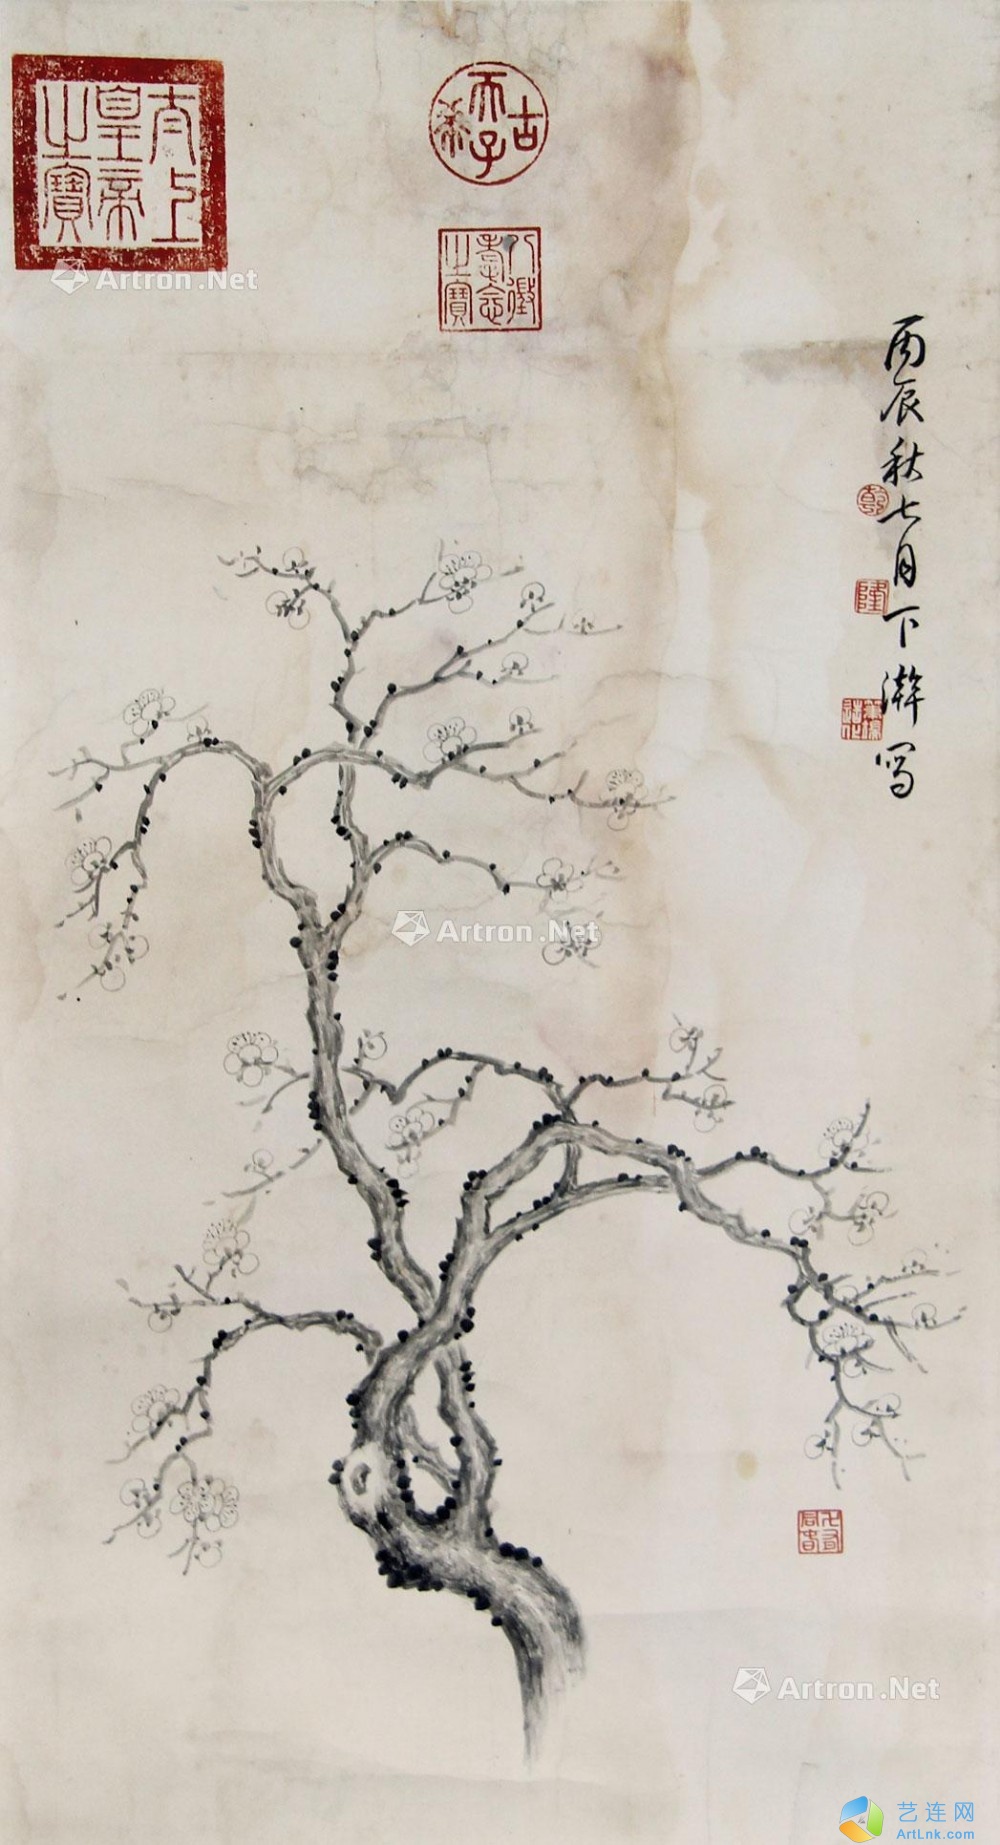 太上
皇帝
之寶
古
天子
希
八徵
耄念
之寶
丙辰秋七月下澣写
乾
隆
Artron.Net
Artron.Net
Artron.Net
艺连网
ArtLnk.com